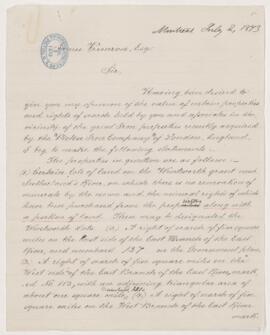 Montreal July 2, 1873
James Primrose, Esq
Sir,
Having been desired to
give you my opinion of the value of certain properties
and rights of search held by you and associates in the
vicinity of the great Iron properties recently acquired
by the Company of London, England,
I beg to make the following statements.
The properties in question are as follows:-
(1) Certain lots of land on the Wentworth grant and
Sutherland's River, on which there is no reservation of
minerals by the Crown and the mineral rights of which
have been purchased from the proprietors along with
a portion of land. These may be designated the
Wentworth Lots. (2) A right of search of five square
miles on the East side of the East Branch of the East
River, and numbered 127 on the Government plan,
(3) A right of search of five square miles on the
West side of the East Branch of the East River, mark-
ed No. 113, with an adjoining triangular area of
about one square mile, (4) A right of search of five
square miles on the West of the East Branch of East River
mark-